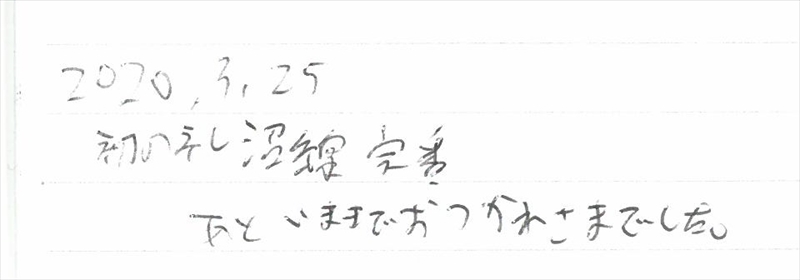 2020,3,25
初の札沼線完乗
あといままでおつかれさまでした。